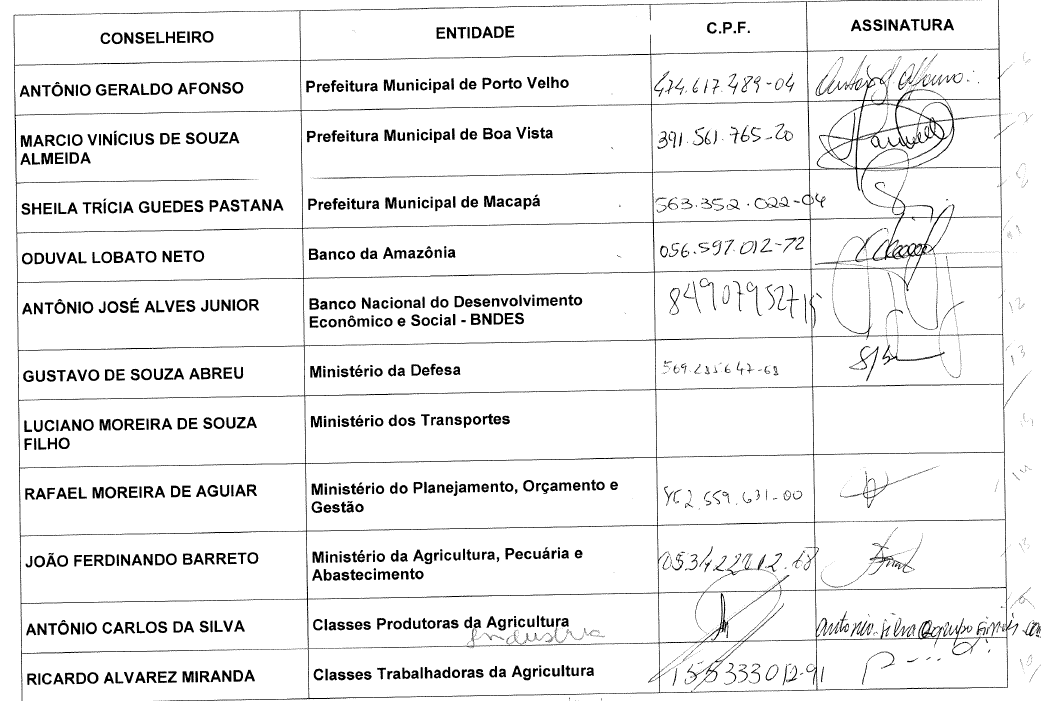 CONSELHEIRO ENTIDADE C.P.F. ASSINATURA
ANTÔNIO GERALDO AFONSO Prefeitura Municipal de Porto Velho 474.617.489-04 Antônio G Afonso
MARCIO VINÍCIUS DE SOUZA Prefeitura Municipal de Boa Vista 391.561.765-20
ALMEIDA
SHEILA TRÍCIA GUEDES PASTANA Prefeitura Municipal de Macapá 563.352.022-04
ODUVAL LOBATO NETO Banco da Amazônia 056.597.012-72
ANTÔNIO JOSÉ ALVES JUNIOR Banco Nacional do Desenvolvimento
Econômico e Social - BNDES
GUSTAVO DE SOUZA ABREU Ministério da Defesa
LUCIANO MOREIRA DE SOUZA Ministério dos Transportes
FILHO
RAFAEL MOREIRA DE AGUIAR Ministério do Planejamento, Orçamento e
Gestão
JOÃO FERDINANDO BARRETO Ministério da Agricultura, Pecuária e
Abastecimento
ANTÔNIO CARLOS DA SILVA Classes Produtoras da Agricultura
Indústria
RICARDO ALVAREZ MIRANDA Classes Trabalhadoras da Agricultura 155333012-91